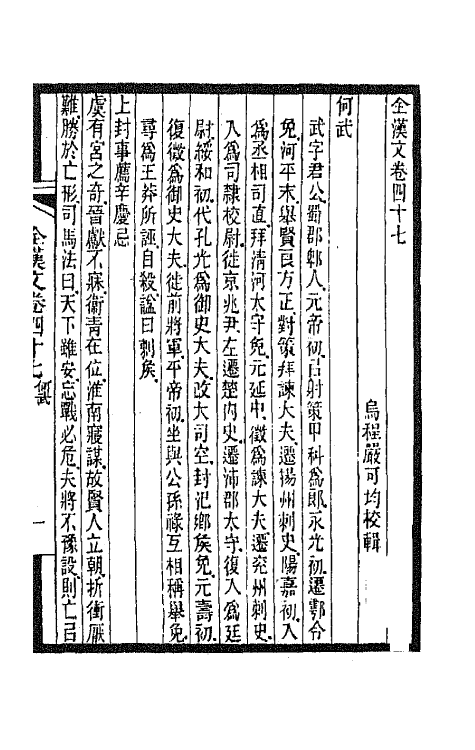 全漢文卷四十七
烏程嚴可均校輯
何武
武字君公蜀郡郫人元帝初㠯射策甲科爲郎永光初遷鄠令
免河平末舉賢良方正對策拜諫大夫遷揚州刺史陽嘉初入
爲丞相司直拜清河太守免元延中徵爲諫大夫遷兖州刺史
入爲司隸校尉徙京兆尹左遷楚內史遷沛郡太守復入爲廷
尉綏和初代孔光爲御史大夫改大司空封氾鄉矦免元壽初
復徵爲御史大夫徙前將軍平帝初坐與公孫祿互相稱舉免
尋爲王莽所誣自殺諡曰剌矦
上封事薦辛慶忌
虞有宮之奇晉獻不寐衞青在位淮南寢謀故賢人立朝折衝厭
難勝於亡形司馬法曰天下雖安忘戰必危夫將不豫設則亡㠯
全漢文卷四十七 何武 一